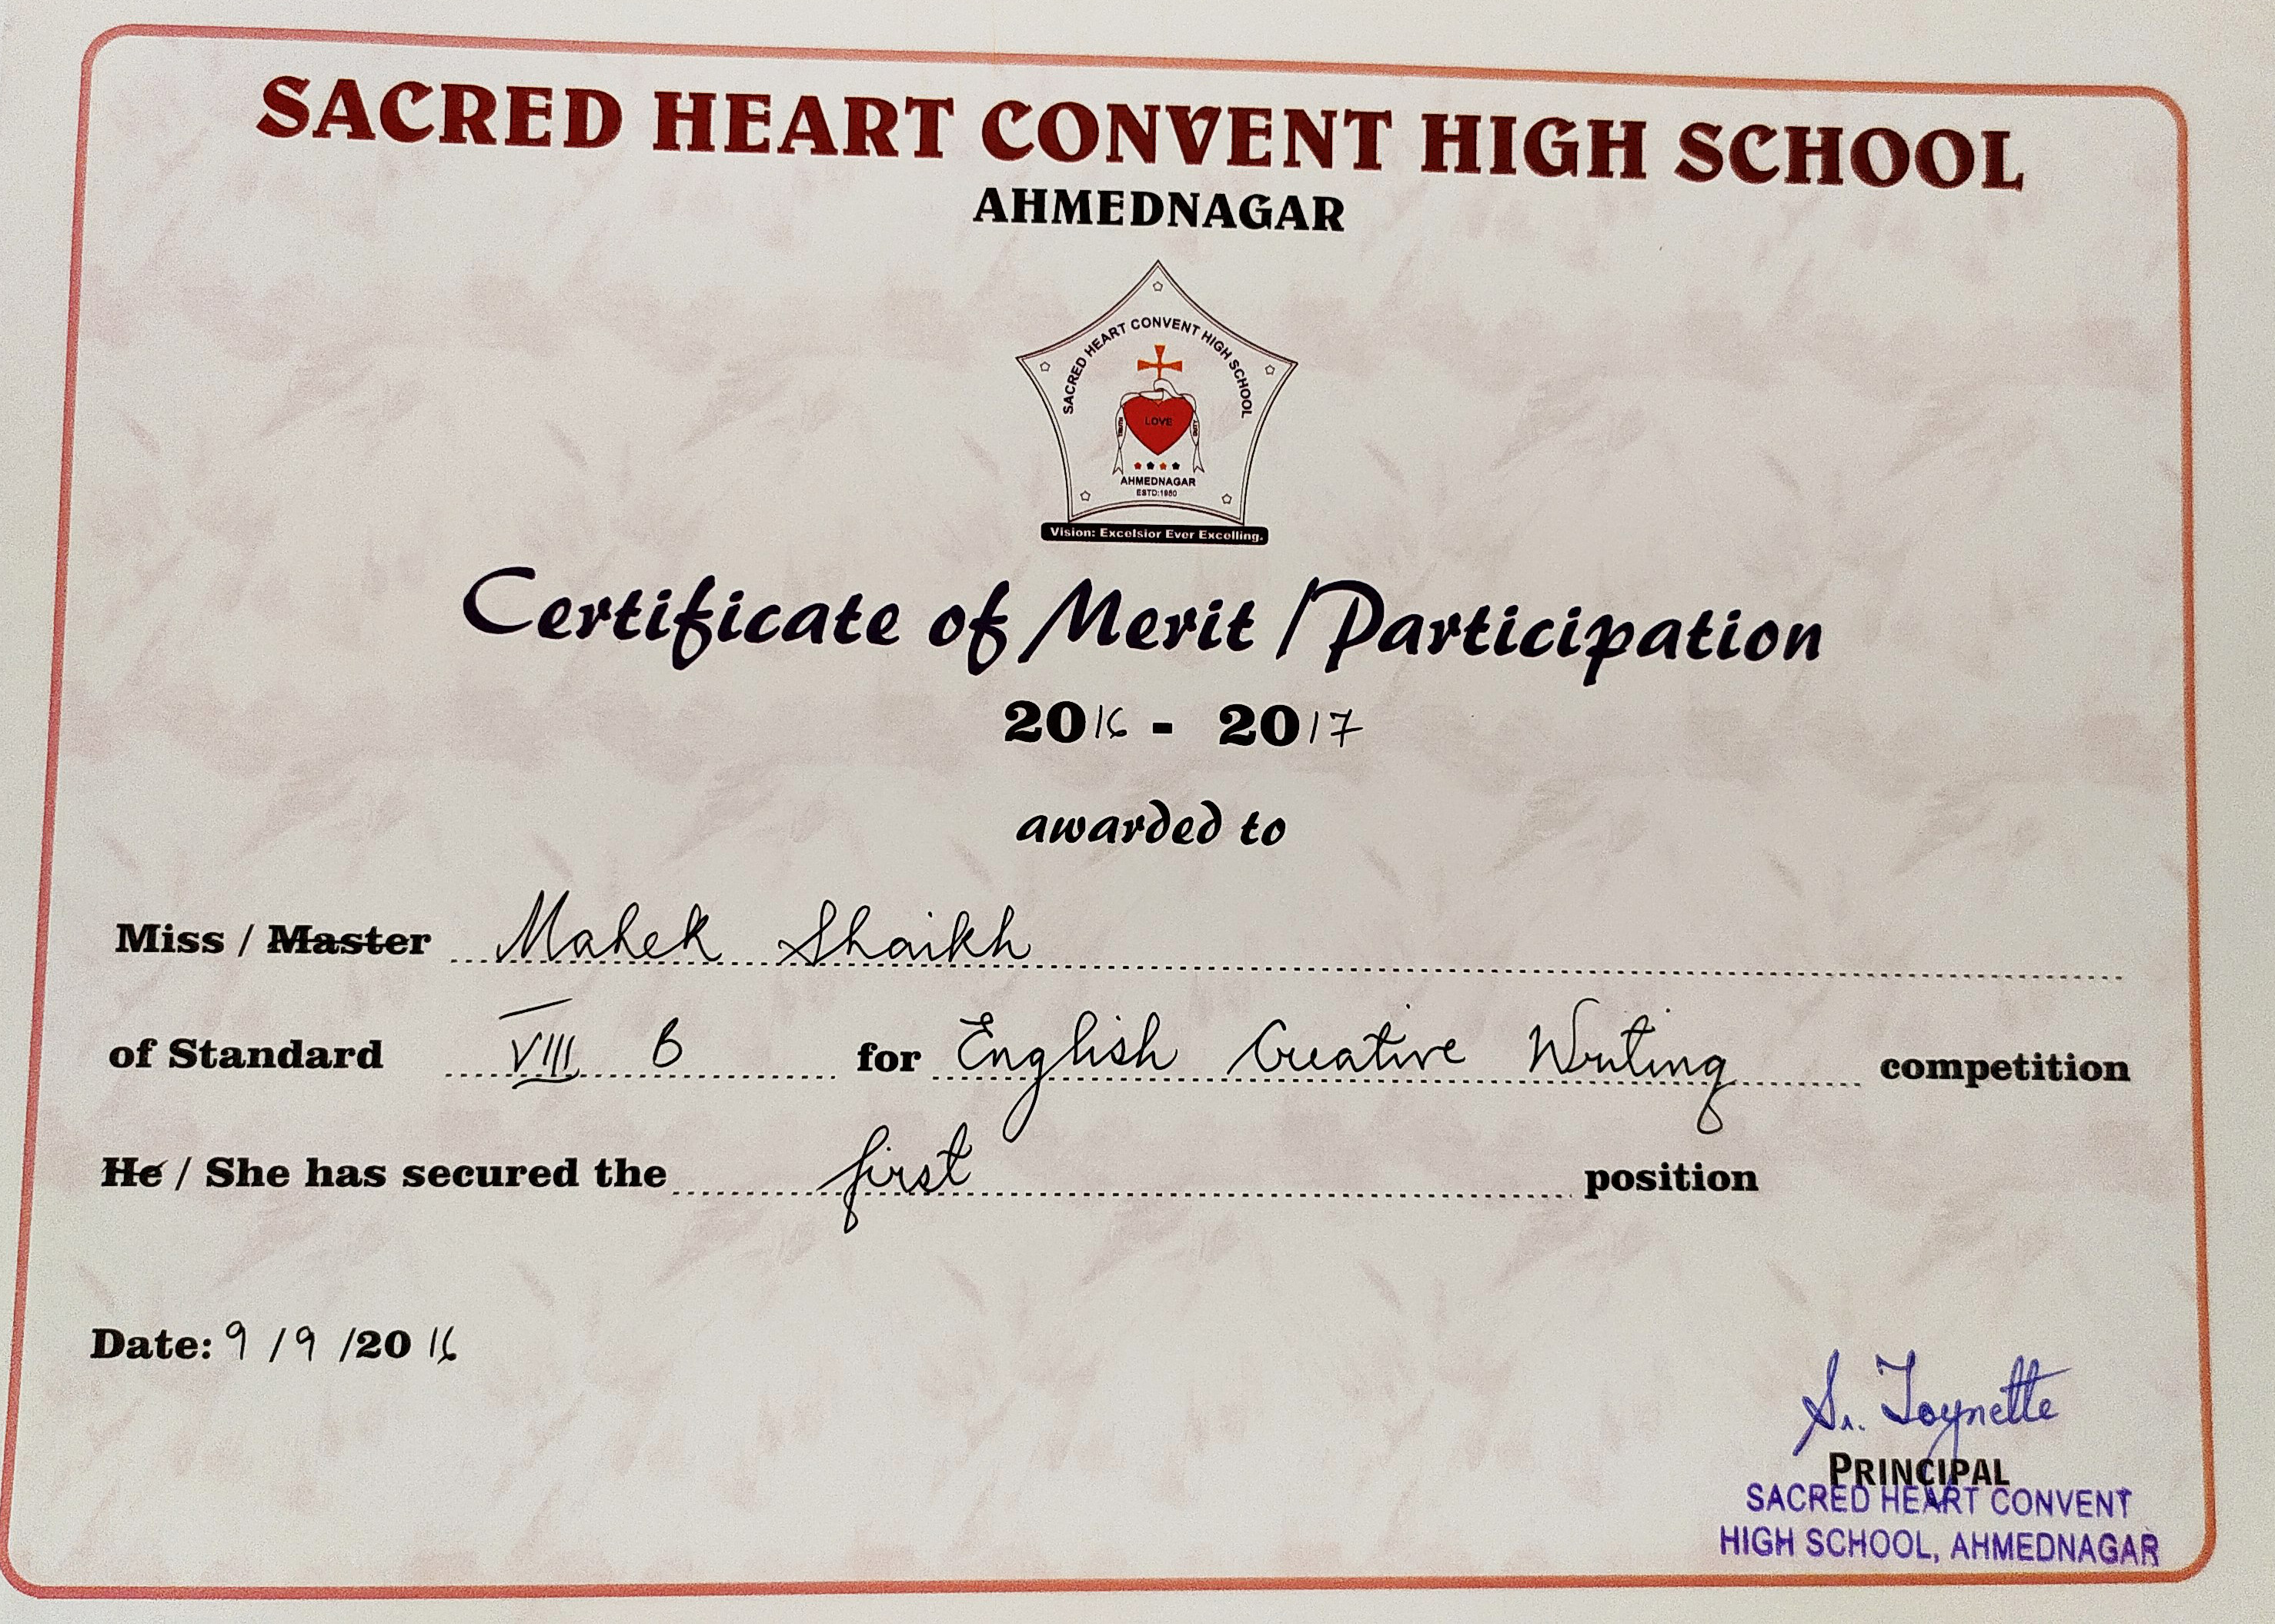 SACRED HEART CONVENT HIGH SCHOOL
AHMEDNAGAR
SACRED HEART CONVENT HIGH SCHOOL
LOVE
AHMEDNAGAR
ESTD:1980
Vision: Excelsior Ever Excelling.
Certificate of Merit / Participation
2016 - 2017
awarded to
Miss / Master Mahek Shaikh
of Standard VIII B for English Creative Writing competition
He / She has secured the first position
Date: 9 / 9 /20 16
Sr. Joynette
PRINCIPAL
SACRED HEART CONVENT
HIGH SCHOOL, AHMEDNAGAR